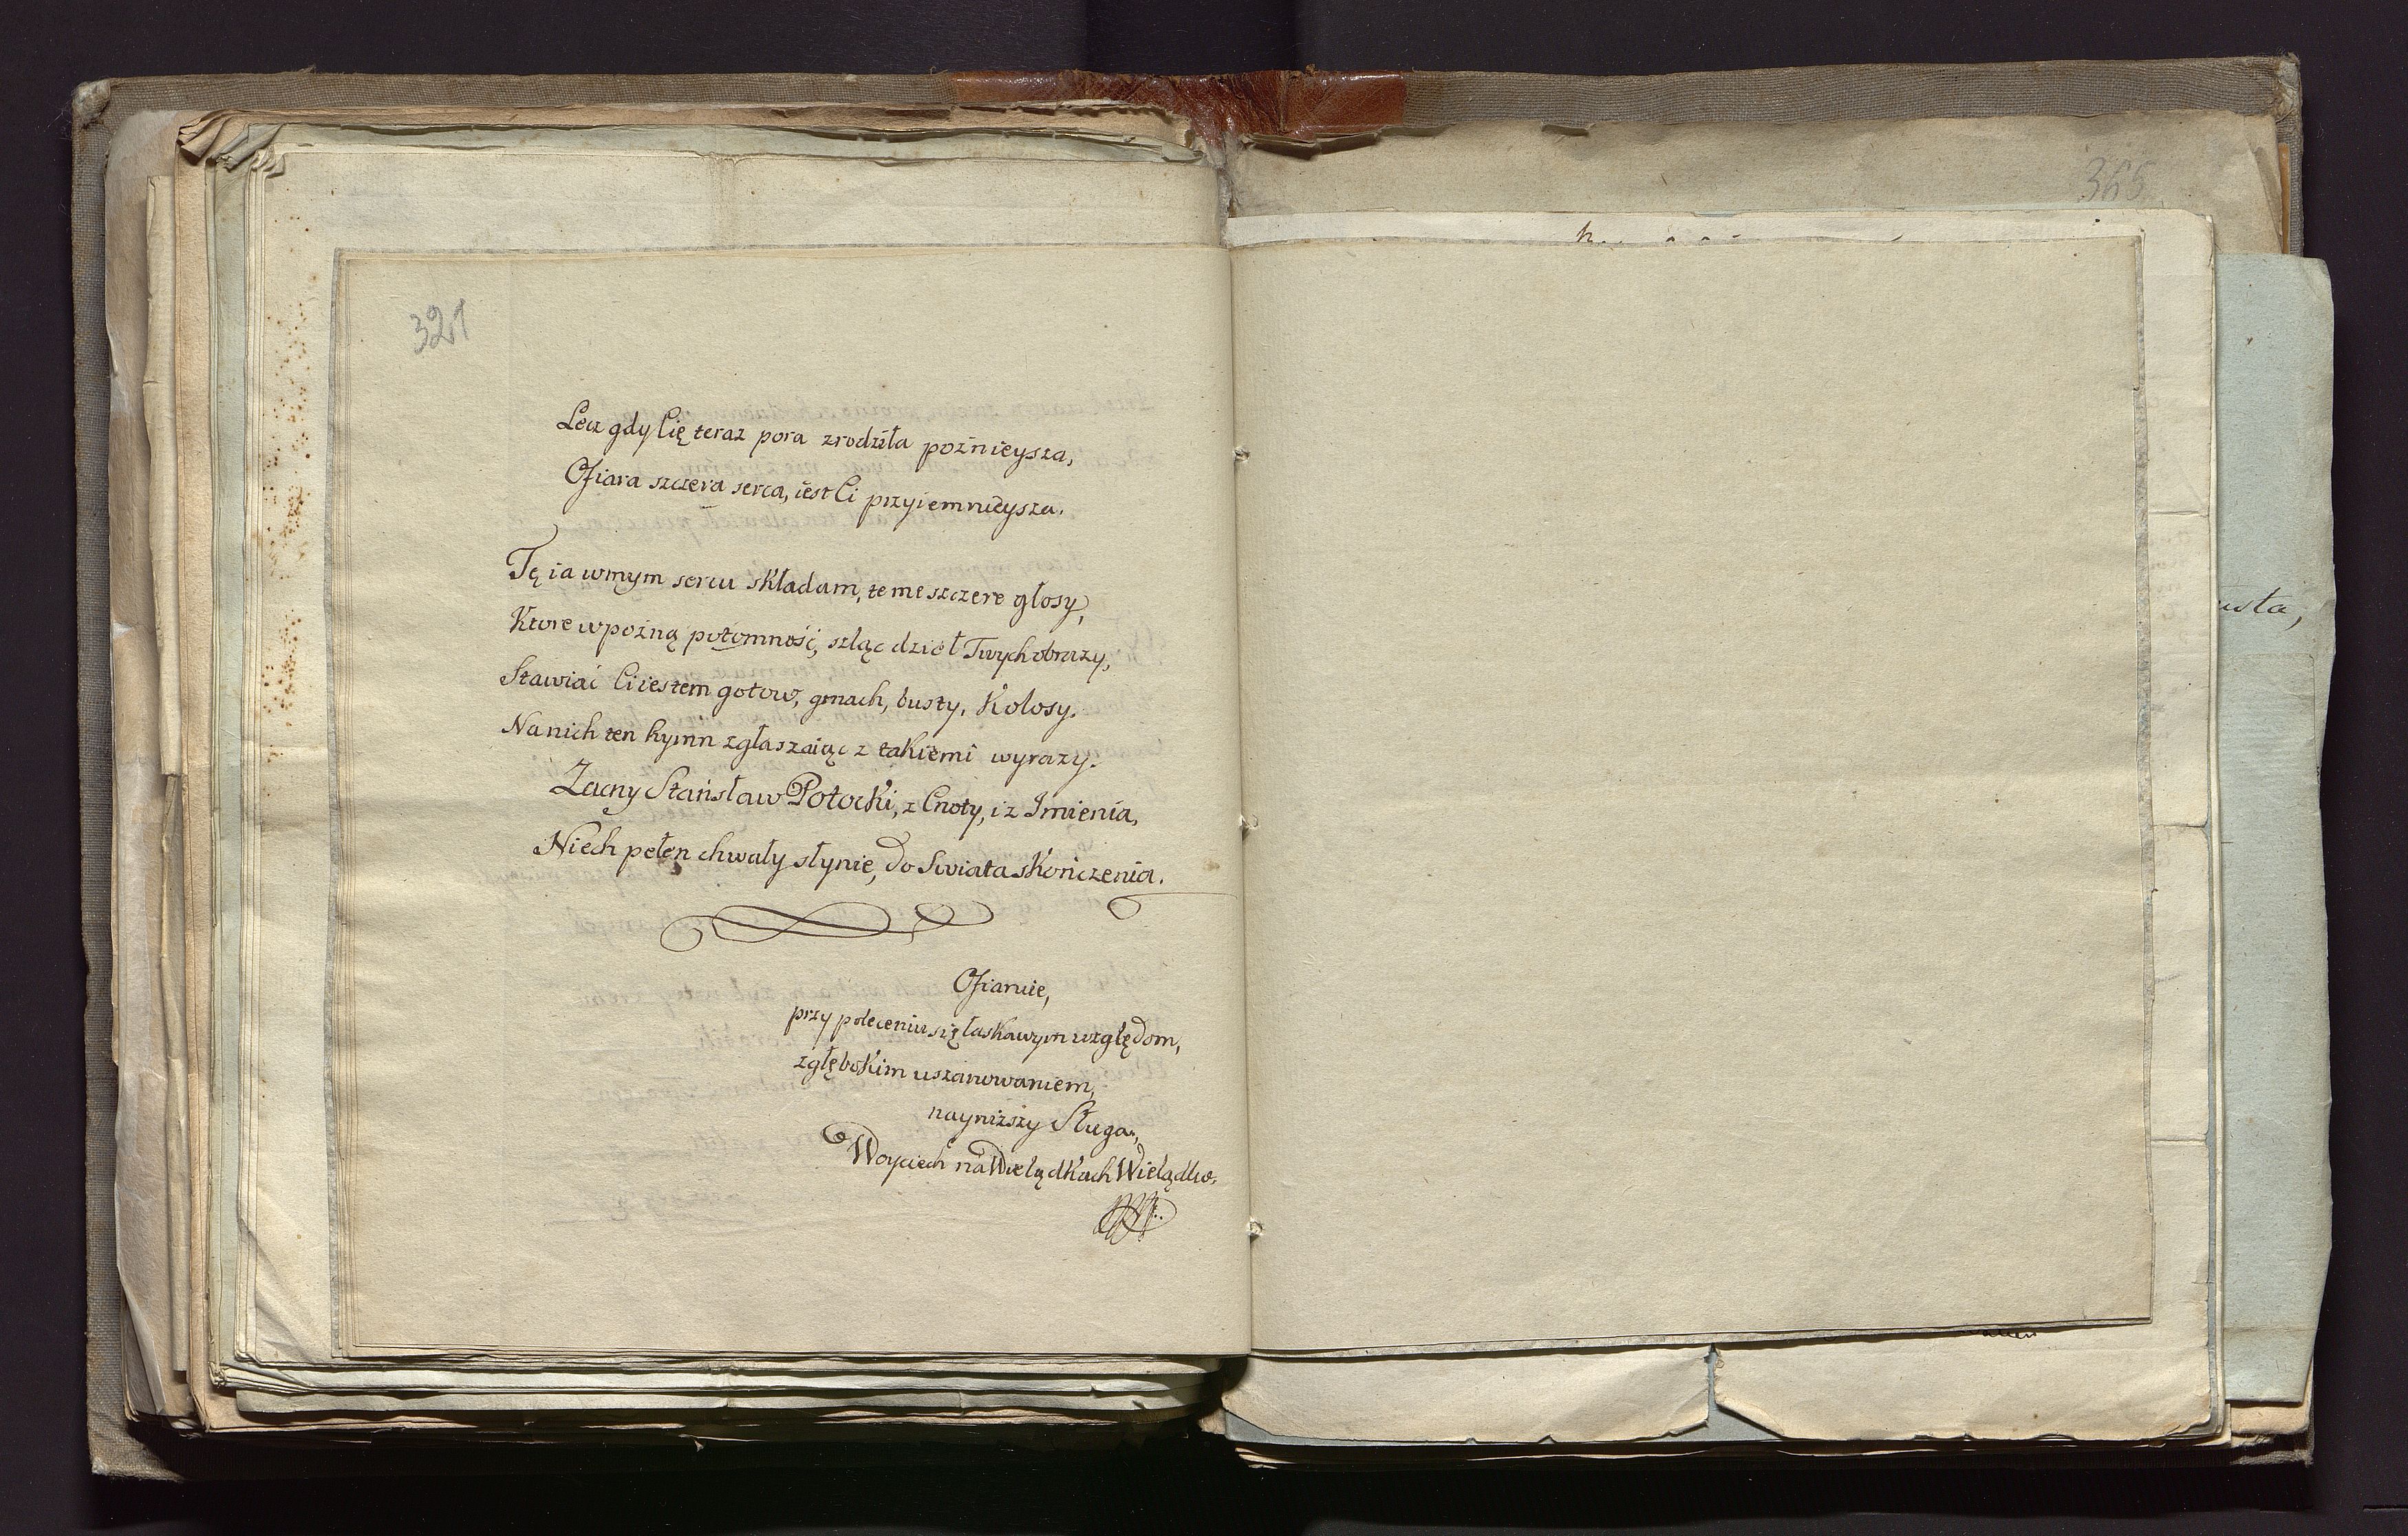 321
Lecz gdy Cię teraz pora zrodziła poźnieysza,
Ofiara szczera serca, iest Ci przyiemnieysza.
Tę ia w mym sercu składam, te me szczere głosy,
Ktore w poźną potomność, szląc dzieł Twych obrazy,
Stawiać Ci iestem gotow, gmach, busty, Kolosy.
Na nich ten hymn zgłaszaiąc z takiemi wyrazy.
Zacny Stanisław Potocki, z Cnoty, i z Imienia,
Niech pełen chwały słynie, do Swiata skończenia.
Ofiaruie,
przy poleceniu się łaskawym względom,
z głębokim uszanowaniem,
nayniższy Sługa,
Woyciech na Wielądkach Wielądko.
365